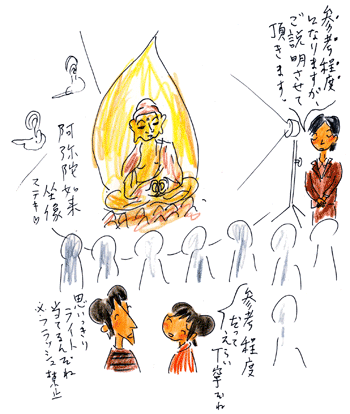 参考程度
になりますが、
ご説明させて
頂きます。
阿弥陀如来
坐像
ステキ♡
参考程度
だって
えらい
丁寧だね
思いっきり
ライト
当てるんだね
※フラッシュ禁止